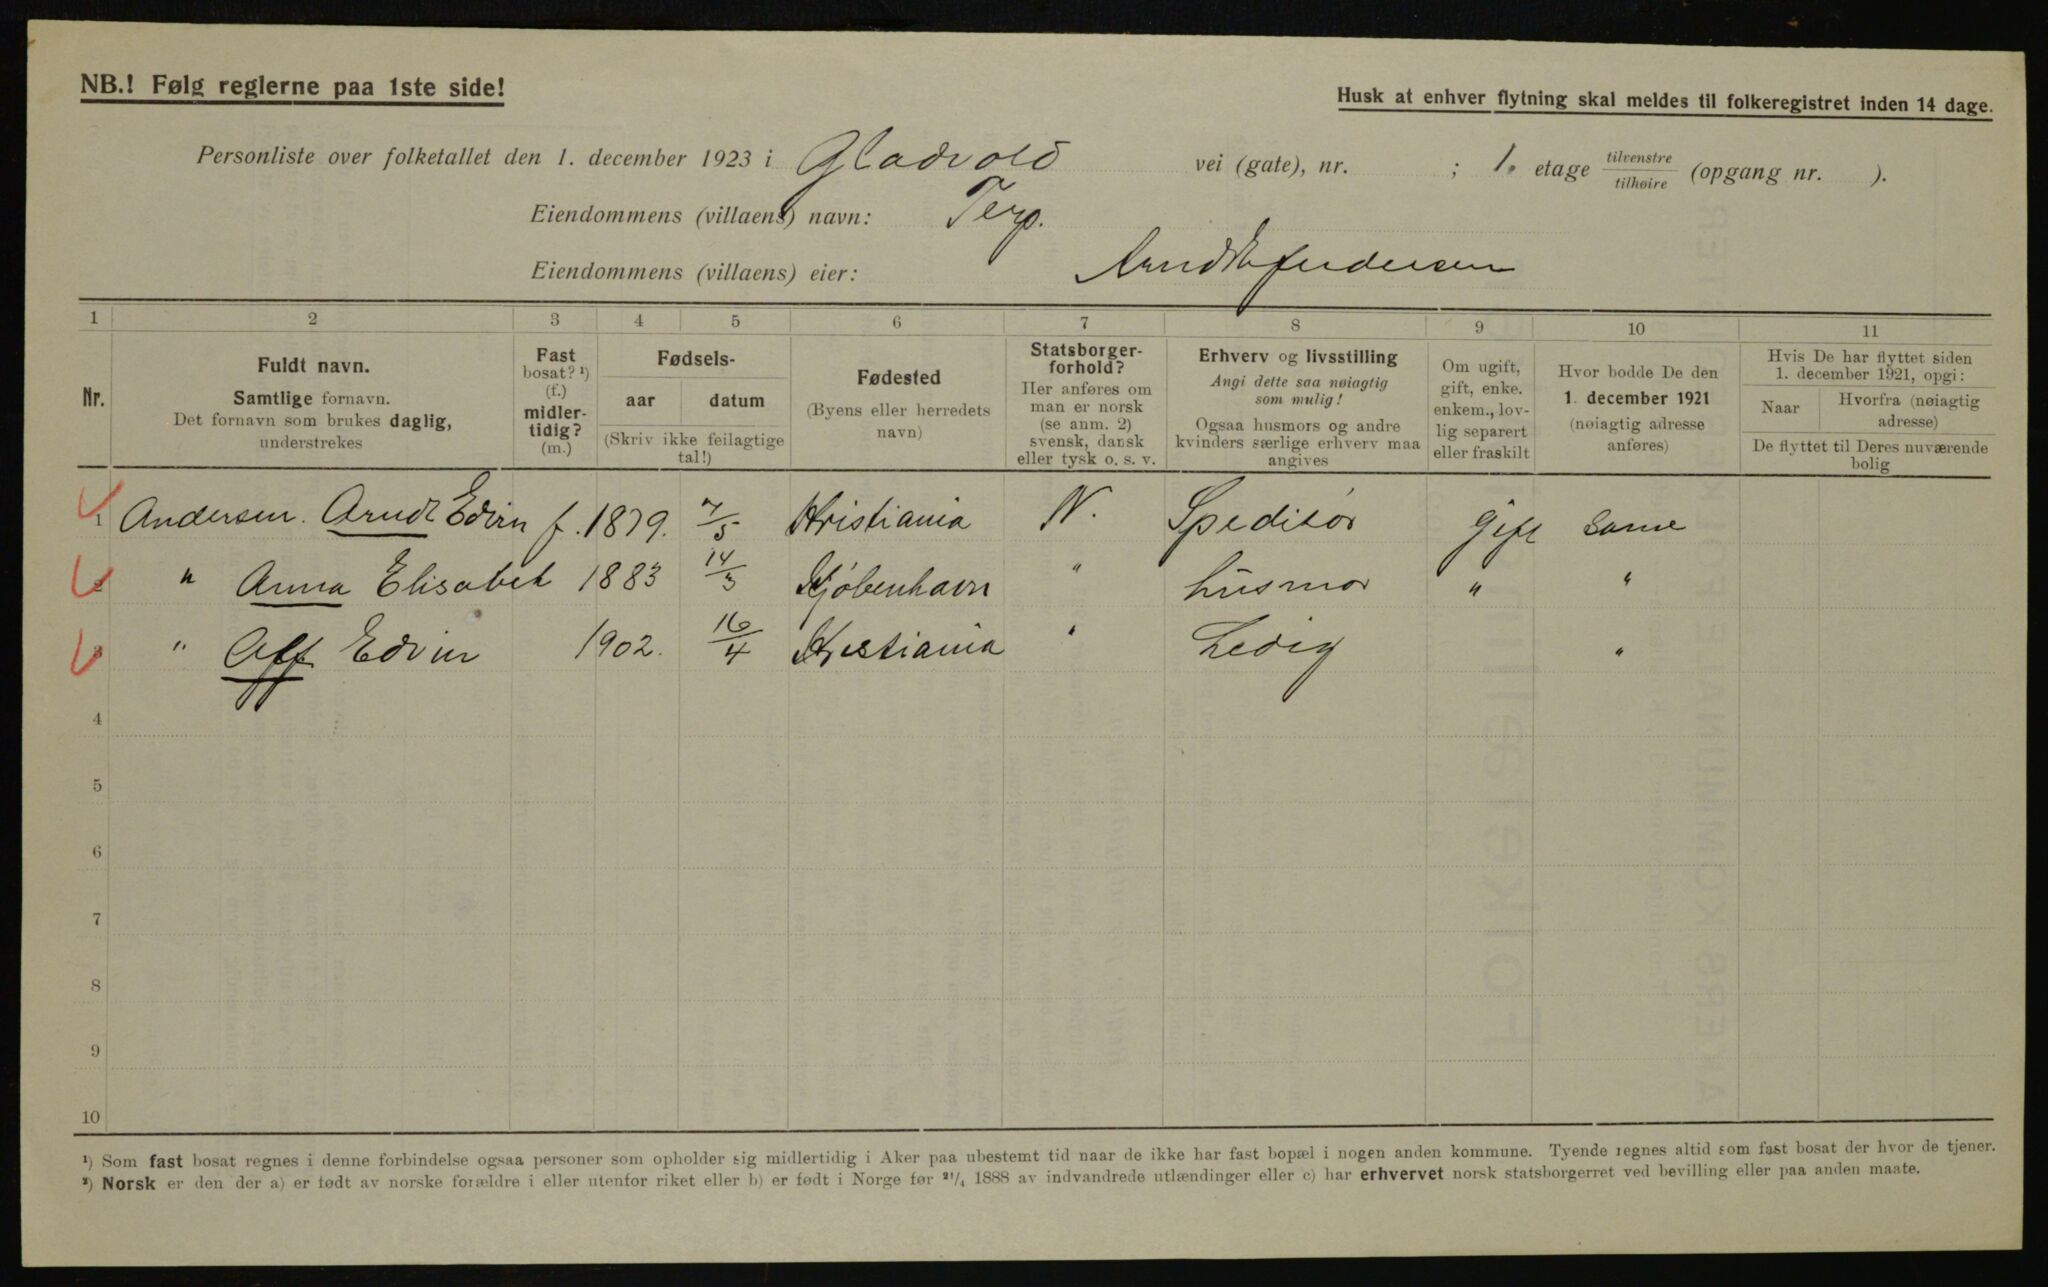 NB.! Følg reglerne paa 1ste side!
Husk at enhver flytning skal meldes til folkeregistret inden 14 dage.
Personliste over folketallet den 1. december 1923 i Gladvold vei (gate), nr. ; 1. etage tilvenstre / tilhøire (opgang nr. ).
Eiendommens (villaens) navn: Terp.
Eiendommens (villaens) eier: Arndt Andersen
1 2 3 4 5 6 7 8 9 10 11
Nr.
Fuldt navn.
Samtlige fornavn.
Det fornavn som brukes daglig,
understrekes
Fast
bosat? ¹)
(f.)
midler-
tidig?
(m.)
Fødsels-
aar datum
(Skriv ikke feilagtige
tal!)
Fødested
(Byens eller herredets
navn)
Statsborger-
forhold?
Her anføres om
man er norsk
(se anm. 2)
svensk, dansk
eller tysk o. s. v.
Erhverv og livsstilling
Angi dette saa nøiagtig
som mulig!
Ogsaa husmors og andre
kvinders særlige erhverv maa
angives
Om ugift,
gift, enke.
enkem., lov-
lig separert
eller fraskilt
Hvor bodde De den
1. december 1921
(nøiagtig adresse
anføres)
Hvis De har flyttet siden
1. december 1921, opgi:
Naar
Hvorfra (nøiagtig
adresse)
De flyttet til Deres nuværende
bolig
1 Andersen. Arndt Edvin f. 1879. 7/5 Kristiania N. Speditør gift Same
2 " Anna Elisabet 1883 14/3 Kjøbenhavn " husmor " "
3 " Alf Edvin 1902. 16/4 Kristiania " Ledig "
4
5
6
7
8
9
10
¹) Som fast bosat regnes i denne forbindelse ogsaa personer som opholder sig midlertidig i Aker paa ubestemt tid naar de ikke har fast bopæl i nogen anden kommune. Tyende regnes altid som fast bosat der hvor de tjener.
²) Norsk er den der a) er født av norske forældre i eller utenfor riket eller b) er født i Norge før ²¹/₄ 1888 av indvandrede utlændinger eller c) har erhvervet norsk statsborgerret ved bevilling eller paa anden maate.